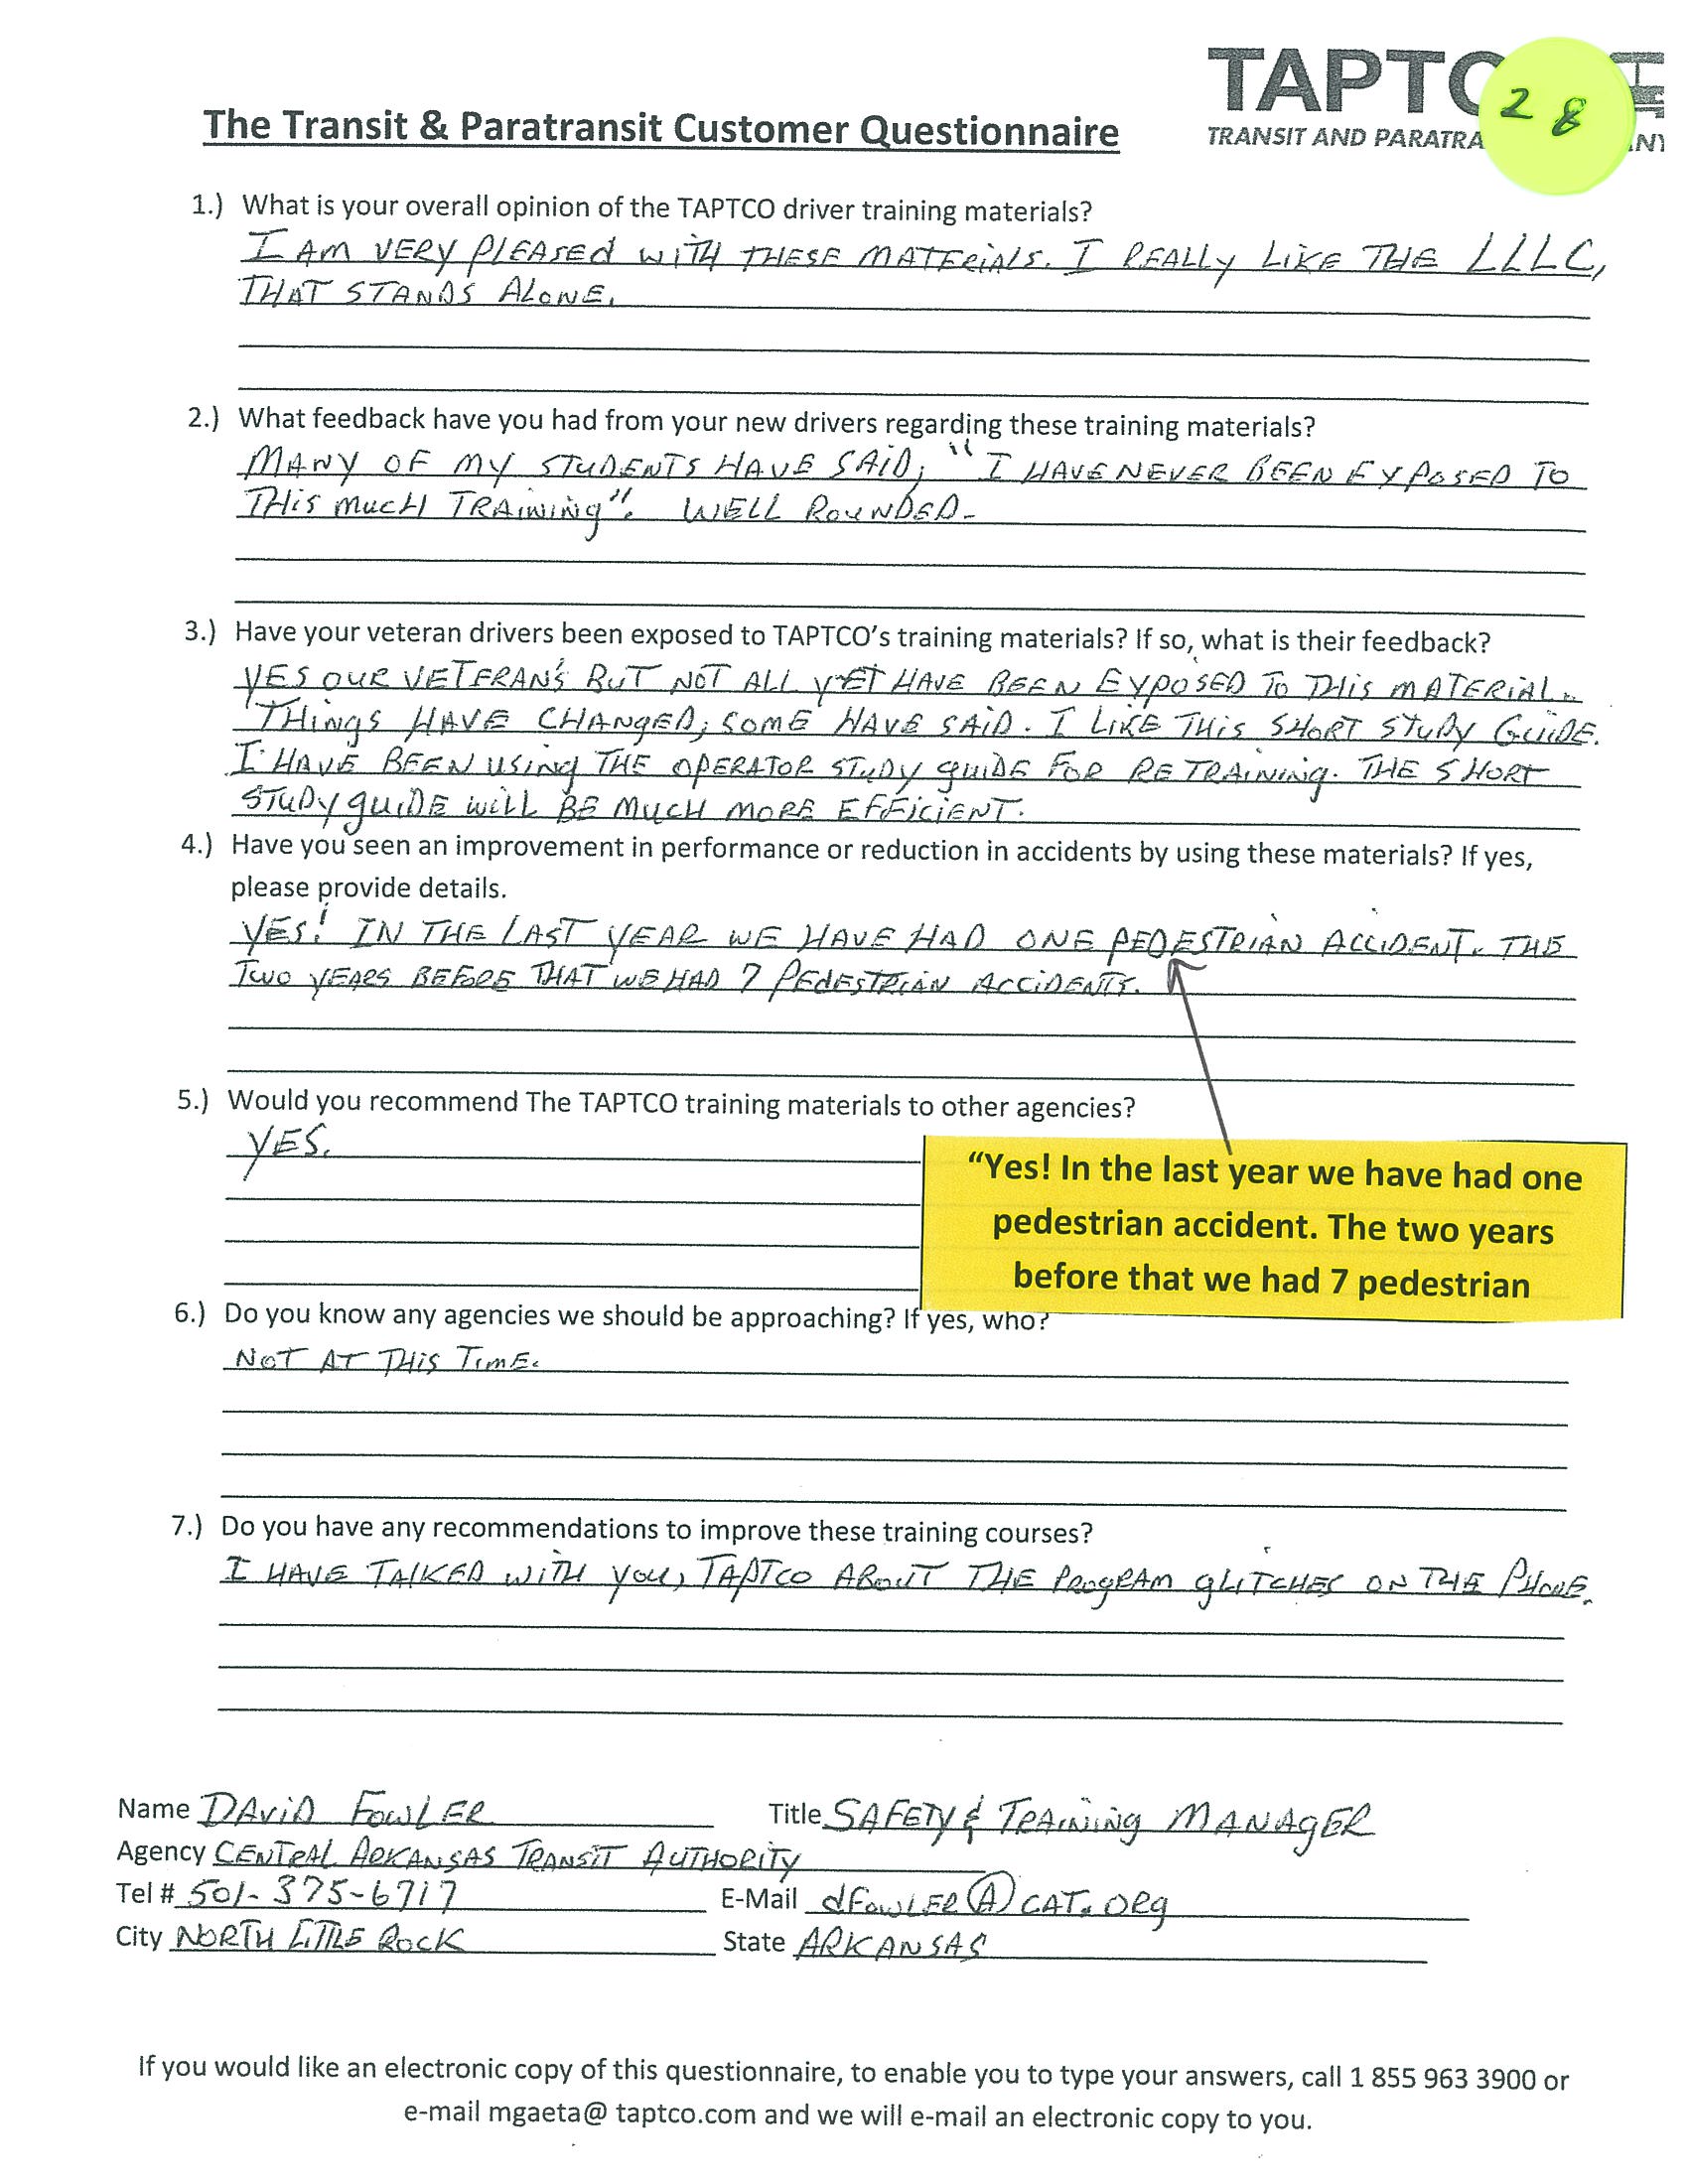 TAPTC
28
TRANSIT AND PARATRA NY
The Transit & Paratransit Customer Questionnaire
1.) What is your overall opinion of the TAPTCO driver training materials?
I AM VERY PLEASED WITH THESE MATERIALS. I REALLY LIKE THE LLLC,
THAT STANDS ALONE.
2.) What feedback have you had from your new drivers regarding these training materials?
MANY OF MY STUDENTS HAVE SAID, "I HAVE NEVER BEEN EXPOSED TO
THIS MUCH TRAINING". WELL ROUNDED-
3.) Have your veteran drivers been exposed to TAPTCO's training materials? If so, what is their feedback?
YES OUR VETERAN'S BUT NOT ALL YET HAVE BEEN EXPOSED TO THIS MATERIAL.
THINGS HAVE CHANGED; SOME HAVE SAID. I LIKE THIS SHORT STUDY GUIDE.
I HAVE BEEN USING THE OPERATOR STUDY GUIDE FOR RETRAINING. THE SHORT
STUDY GUIDE WILL BE MUCH MORE EFFICIENT.
4.) Have you seen an improvement in performance or reduction in accidents by using these materials? If yes,
please provide details.
YES! IN THE LAST YEAR WE HAVE HAD ONE PEDESTRIAN ACCIDENT. THE
TWO YEARS BEFORE THAT WE HAD 7 PEDESTRIAN ACCIDENTS.
5.) Would you recommend The TAPTCO training materials to other agencies?
YES.
"Yes! In the last year we have had one
pedestrian accident. The two years
before that we had 7 pedestrian
6.) Do you know any agencies we should be approaching? If yes, who?
NOT AT THIS TIME.
7.) Do you have any recommendations to improve these training courses?
I HAVE TALKED WITH YOU, TAPTCO ABOUT THE PROGRAM GLITCHES ON THE PHONE.
Name DAVID FOWLER Title SAFETY & TRAINING MANAGER
Agency CENTRAL ARKANSAS TRANSIT AUTHORITY
Tel # 501-375-6717 E-Mail dFOWLER@CAT.ORG
City NORTH LITTLE ROCK State ARKANSAS
If you would like an electronic copy of this questionnaire, to enable you to type your answers, call 1 855 963 3900 or
e-mail mgaeta@ taptco.com and we will e-mail an electronic copy to you.